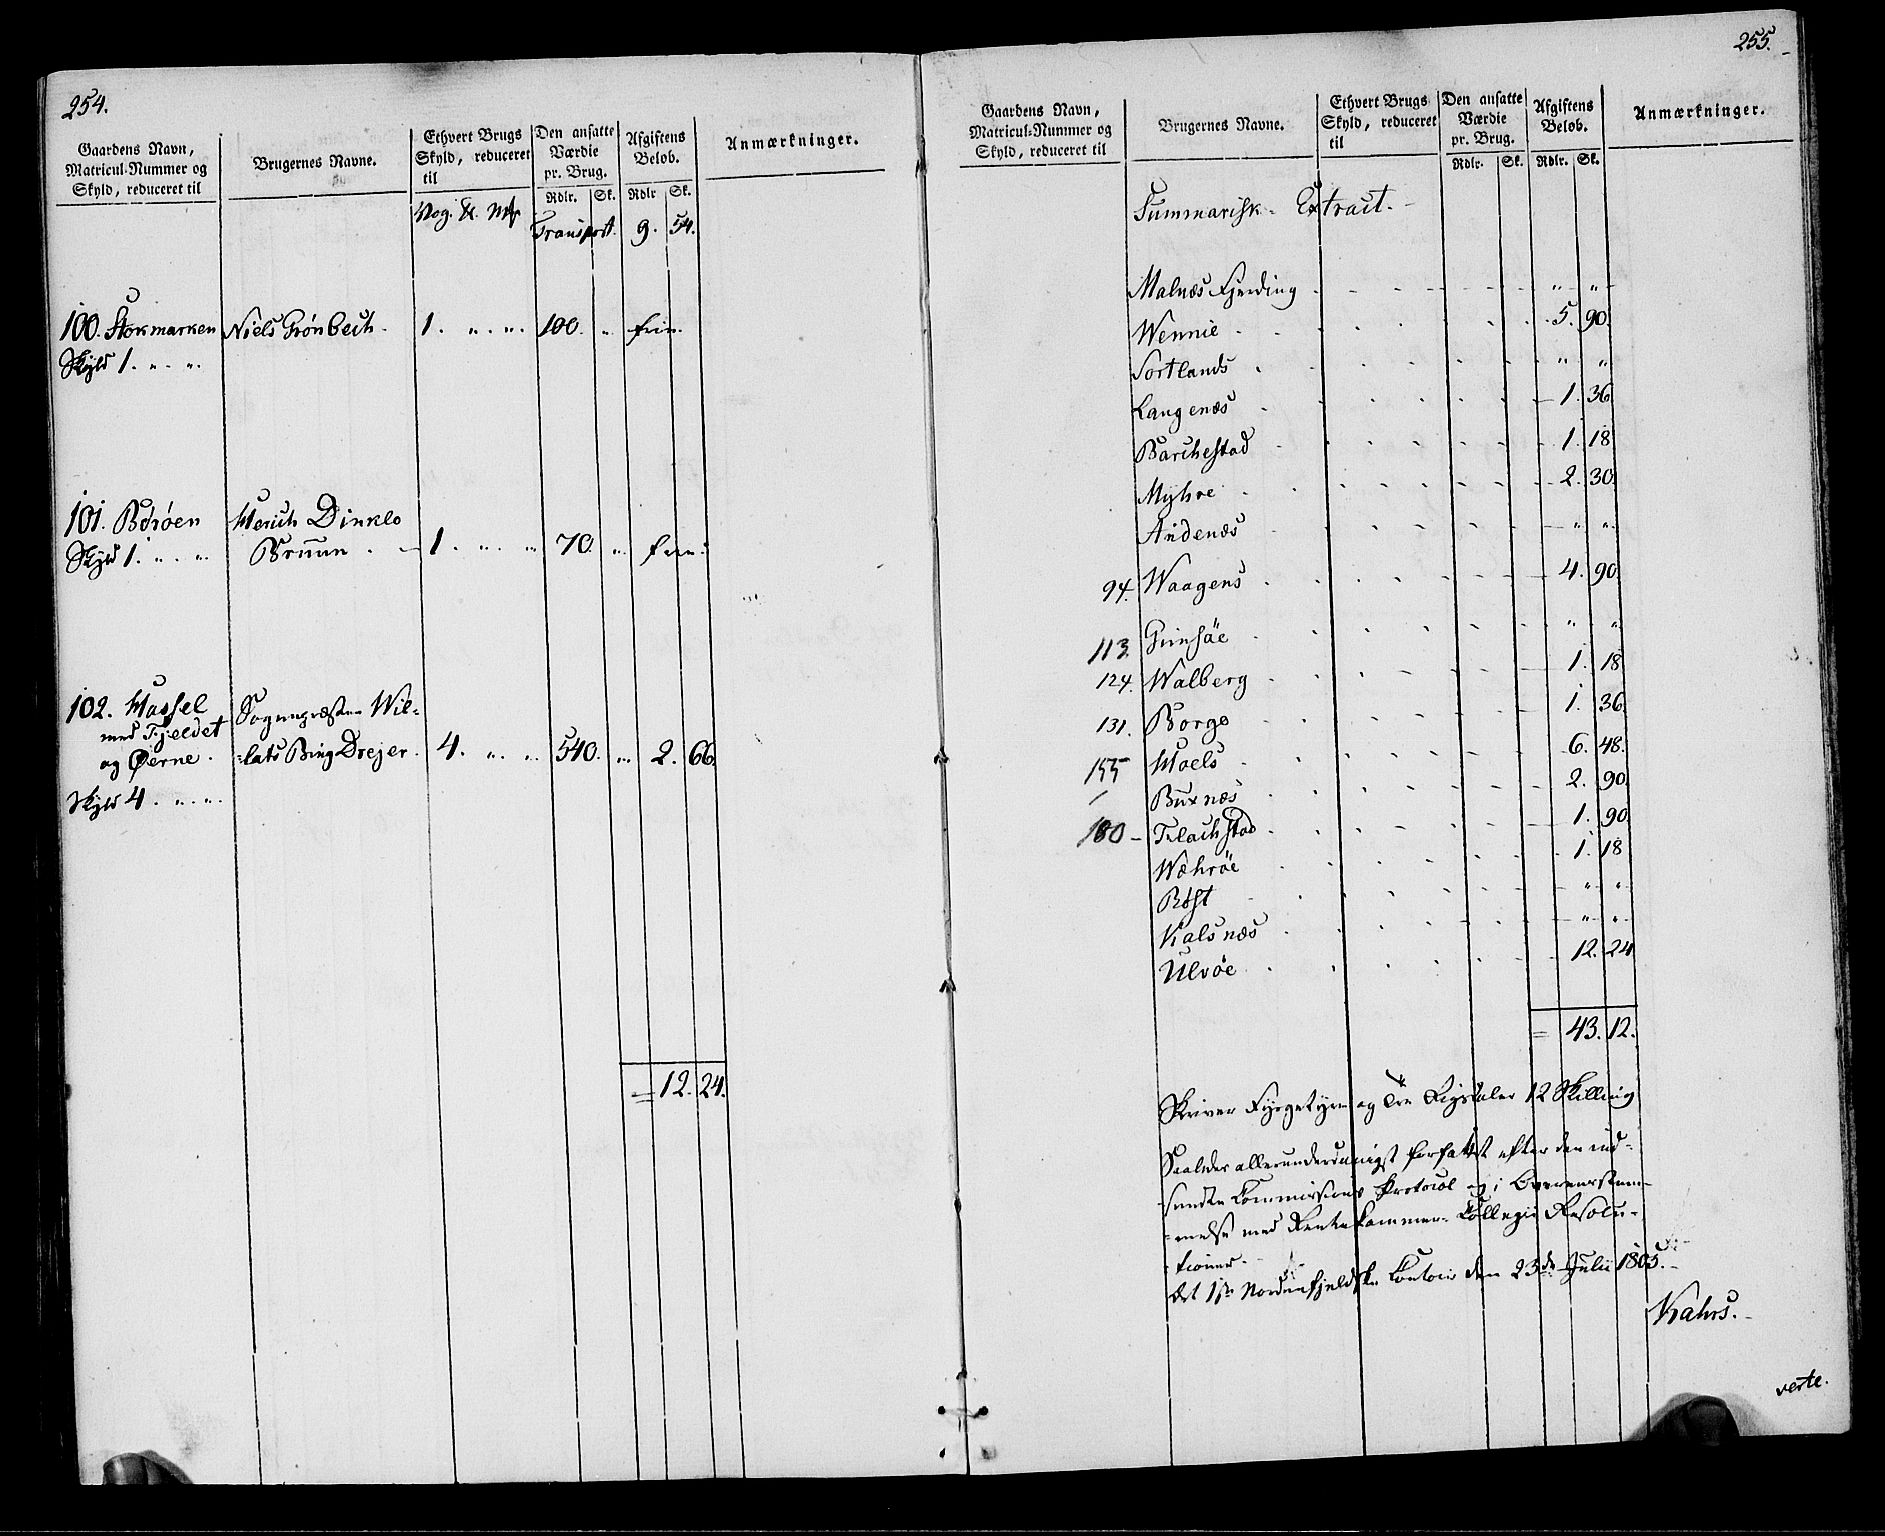 254.
Gaardens Navn, Matricul-Nummer og Skyld, reduceret til | Brugernes Navne. | Ethvert Brugs Skyld, reduceret til | Den ansatte Værdie pr. Brug. Rdlr. Sk. | Afgiftens Beløb. Rdlr Sk. | Anmærkninger.
Vog. Transport. 9. 54.
100. Stokmarken Niels Grönbech. 1. " " 100. " frie.
Skyld 1. " "
101. Böröen Henich Dinklo
Skyld 1. " " Bruun. 1. " " 70. " frie.
102. Hassel Sognepræsten Wil-
med Fjeldet
og Øerne. -lats Bing Drejer. 4. " " 540. " 2. 66.
Skyld 4. " "
= 12. 24.
255.
Gaardens Navn, Matricul-Nummer og Skyld, reduceret til | Brugernes Navne. | Ethvert Brugs Skyld, reduceret til | Den ansatte Værdie pr. Brug. Rdlr. Sk. | Afgiftens Beløb. Rdlr. Sk. | Anmærkninger.
Summarisk Extract.
Malnæs Fjerding " "
Wennie 5. 90.
Sortlands " "
Langenæs 1. 36
Barchestad 1. 18
Myhre 2. 30.
Andenæs " "
94. Waagens 4. 90.
113. Gimsöe " "
124. Walberg 1. 18
131. Borge 1. 36
155 Hoels 6. 48.
Buxnæs 2. 90.
180 - Flachstad 1. 90.
Wæhröe 1. 18
Röst " "
Kalsnæs " "
Ulvöe 12. 24
= 43. 12.
Skriver Fyrgetyve og Tre Rigsdaler 12 Skilling
Saaledes allerunderdanigst forfattet efter den ind-
sendte Commissions Protocol og i Overeenstem-
-melse med Rentekammer-Collegii Resolu-
-tioner.
Det 1ste Nordenfjeldske Contoir den 23de Julii 1803.
Kahrs.
verte.